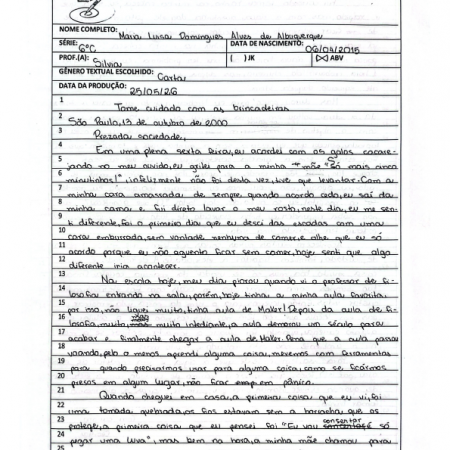 NOME COMPLETO: Maria Luísa Domingues Alves de Albuquerque
SÉRIE: 6ºC DATA DE NASCIMENTO: 06/04/2015
PROF.(A): Silvia ( ) JK (X) ABV
GÊNERO TEXTUAL ESCOLHIDO: Carta
DATA DA PRODUÇÃO: 25/05/26
1 Tome cuidado com as brincadeiras
2 São Paulo, 13 de outubro de 2000
3 Prezada sociedade,
4 Em uma plena sexta feira, eu acordei com os galos cacare-
5 jando no meu ouvido, eu gritei para a minha mãe "só mais cinco
6 minutinhos!", infelizmente não foi desta vez, tive que levantar. Com a
7 minha cara amassada de sempre quando acordo cedo, eu saí da
8 minha cama e fui direto lavar o meu rosto, neste dia, eu me sen-
9 ti diferente, foi o primeiro dia que eu desci das escadas com uma
10 cara emburrada, sem vontade nenhuma de comer, e olhe que eu só
11 acordo porque eu não aguento ficar sem comer, hoje senti que algo
12 diferente iria acontecer.
13 Na escola hoje, meu dia piorou quando vi o professor de fi-
14 losofia entrando na sala, porém, hoje tinha a minha aula favorita
15 por mo, não liguei muito, tinha aula de Maker! Depois da aula de fi-
16 losofia, muito, mas muito intediante, a aula demorou um século para
17 acabar e finalmente chegar a aula de Maker. Pena que a aula passou
18 voando, pelo o menos aprendi alguma coisa, mexemos com ferramentas
19 para quando precisarmos usar para alguma coisa, como se ficármos
20 presos em algum lugar, não ficar em pânico.
21 Quando cheguei em casa, a primeira coisa que eu vi, foi
22 uma tomada quebrada, os fios estavam sem a borracha que os
23 protege, a primeira coisa que eu pensei foi "Eu vou consertar só
24 pegar uma luva", mas bem na hora, a minha mãe chamou para
25